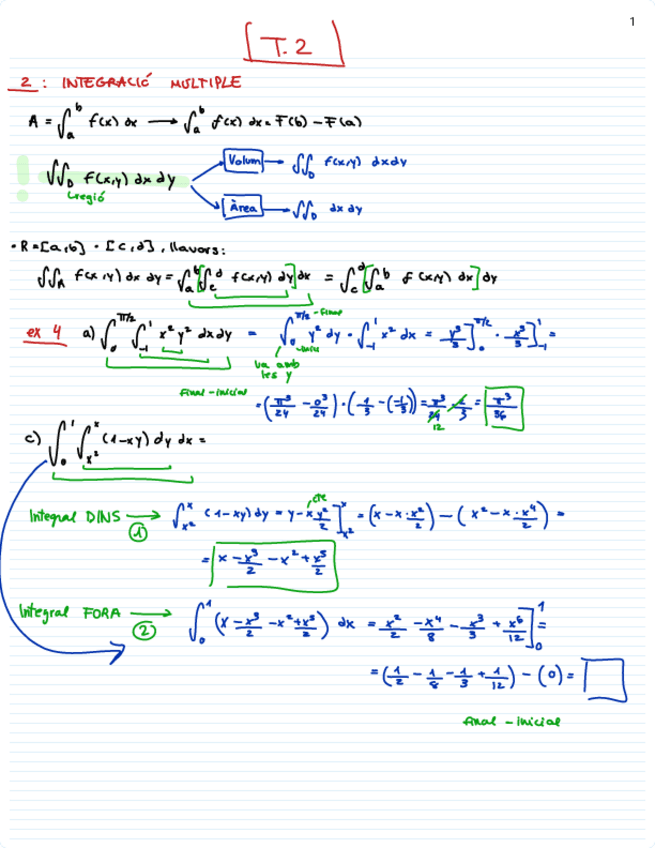 1
T.2
2 : INTEGRACIÓ MULTIPLE
A = ∫_a^b f(x) dx → ∫_a^b f(x) dx = F(b) - F(a)
! ∬_D f(x,y) dx dy
regió
Volum → ∬_D f(x,y) dxdy
Àrea → ∬_D dx dy
• R = [a,b] · [c,d], llavors:
∬_R f(x,y) dx dy = ∫_a^b [∫_c^d f(x,y) dy] dx = ∫_c^d [∫_a^b f(x,y) dx] dy
ex 4 a) ∫_0^{π/2} ∫_{-1}^1 x² y² dx dy = ∫_0^{π/2} y² dy · ∫_{-1}^1 x² dx = y³/3 ]_0^{π/2} · x³/3 ]_{-1}^1 =
va amb
les y
Final - inicial
= (π³/24 - 0³/24) · (1/3 - (-1/3)) = π³/24 · 2/3 = π³/36
12
c) ∫_0^1 ∫_{x²}^x (1-xy) dy dx =
Integral DINS → ∫_{x²}^x (1-xy) dy = y - x y²/2 ]_{x²}^x = (x - x · x²/2) - (x² - x · x⁴/2) =
①
cte
= x - x³/2 - x² + x⁵/2
Integral FORA → ∫_0^1 (x - x³/2 - x² + x⁵/2) dx = x²/2 - x⁴/8 - x³/3 + x⁶/12 ]_0^1 =
②
= (1/2 - 1/8 - 1/3 + 1/12) - (0) =
Final - inicial